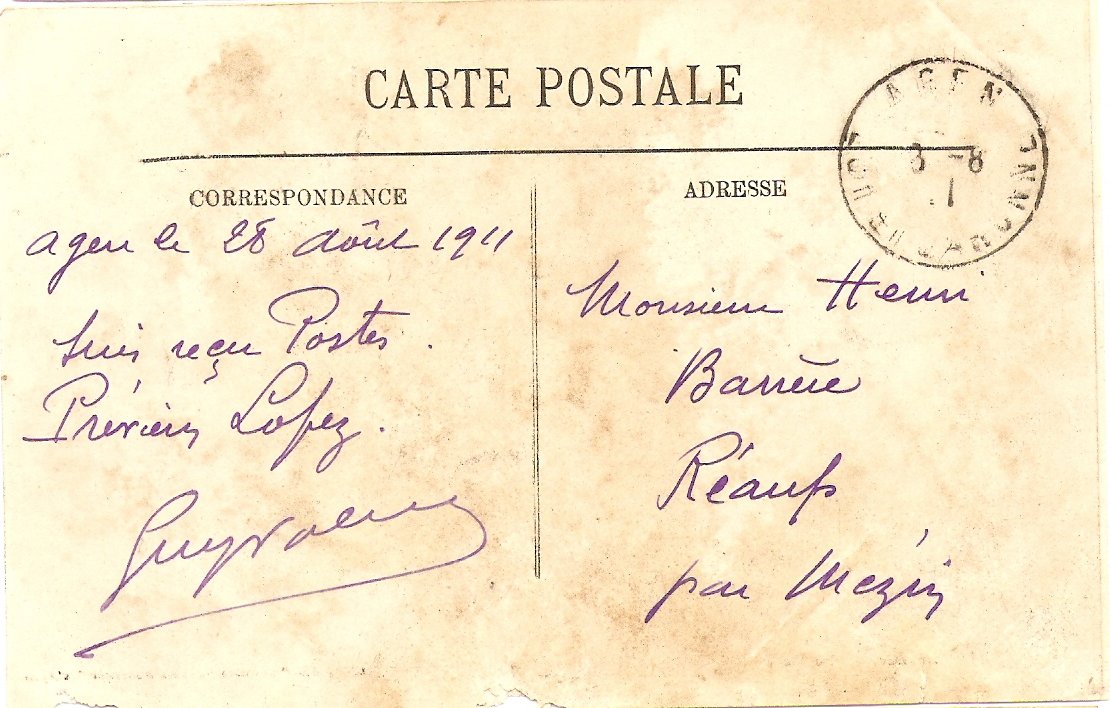 CARTE POSTALE
AGEN
LOT-ET-GARONNE
8
CORRESPONDANCE
ADRESSE
Agen le 28 Août 1911
Suis reçu Postes.
Préviens Lopez.
Monsieur Henri
Barrère
Réaup
par Mézin